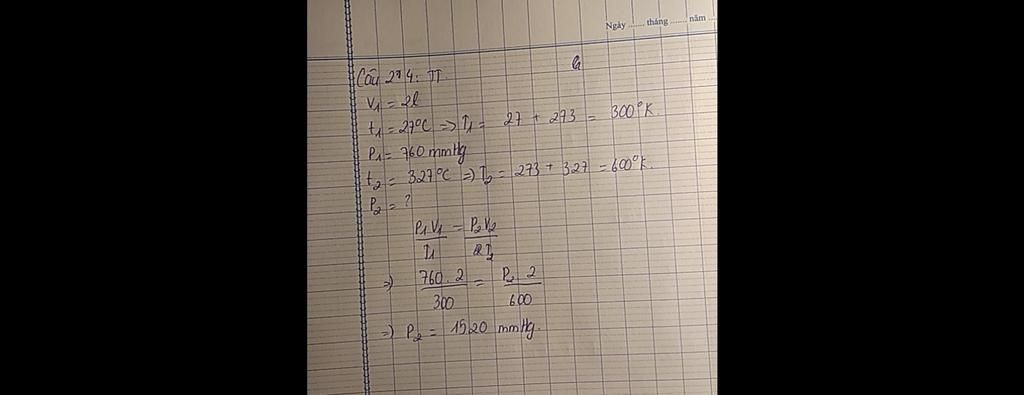 Ngày ...... tháng ...... năm ...
Câu 274: TT.
V₁ = 2l
t₁ = 27°C => T₁ = 27 + 273 = 300°K.
P₁ = 760 mmHg
t₂ = 327°C => T₂ = 273 + 327 = 600°K.
P₂ = ?
P₁V₁/T₁ = P₂V₂/T₂
=> 760.2/300 = P₂ 2/600
=> P₂ = 1520 mmHg.